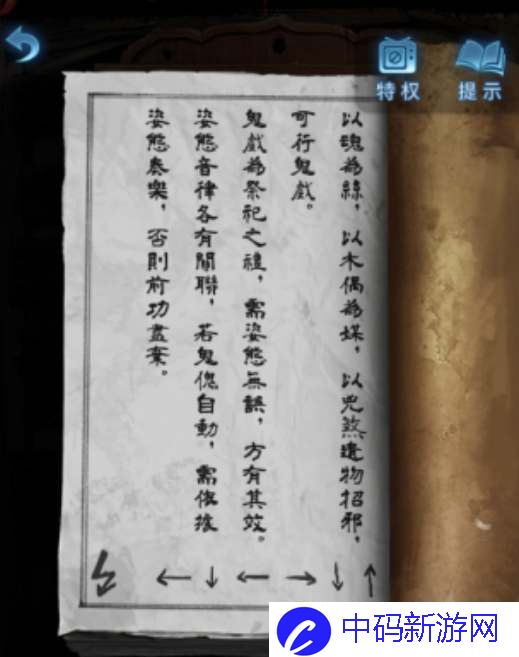 特权
提示
以魂為絲，以木偶為媒，以兇煞遺物招邪，
可行鬼戲。
鬼戲為祭祀之禮，需姿態無誤，方有其效。
姿態音律各有關聯，若鬼傀自動，需依據
姿態奏樂，否則前功盡棄。
← ↓ ← → ↓ ↑
中码新游网